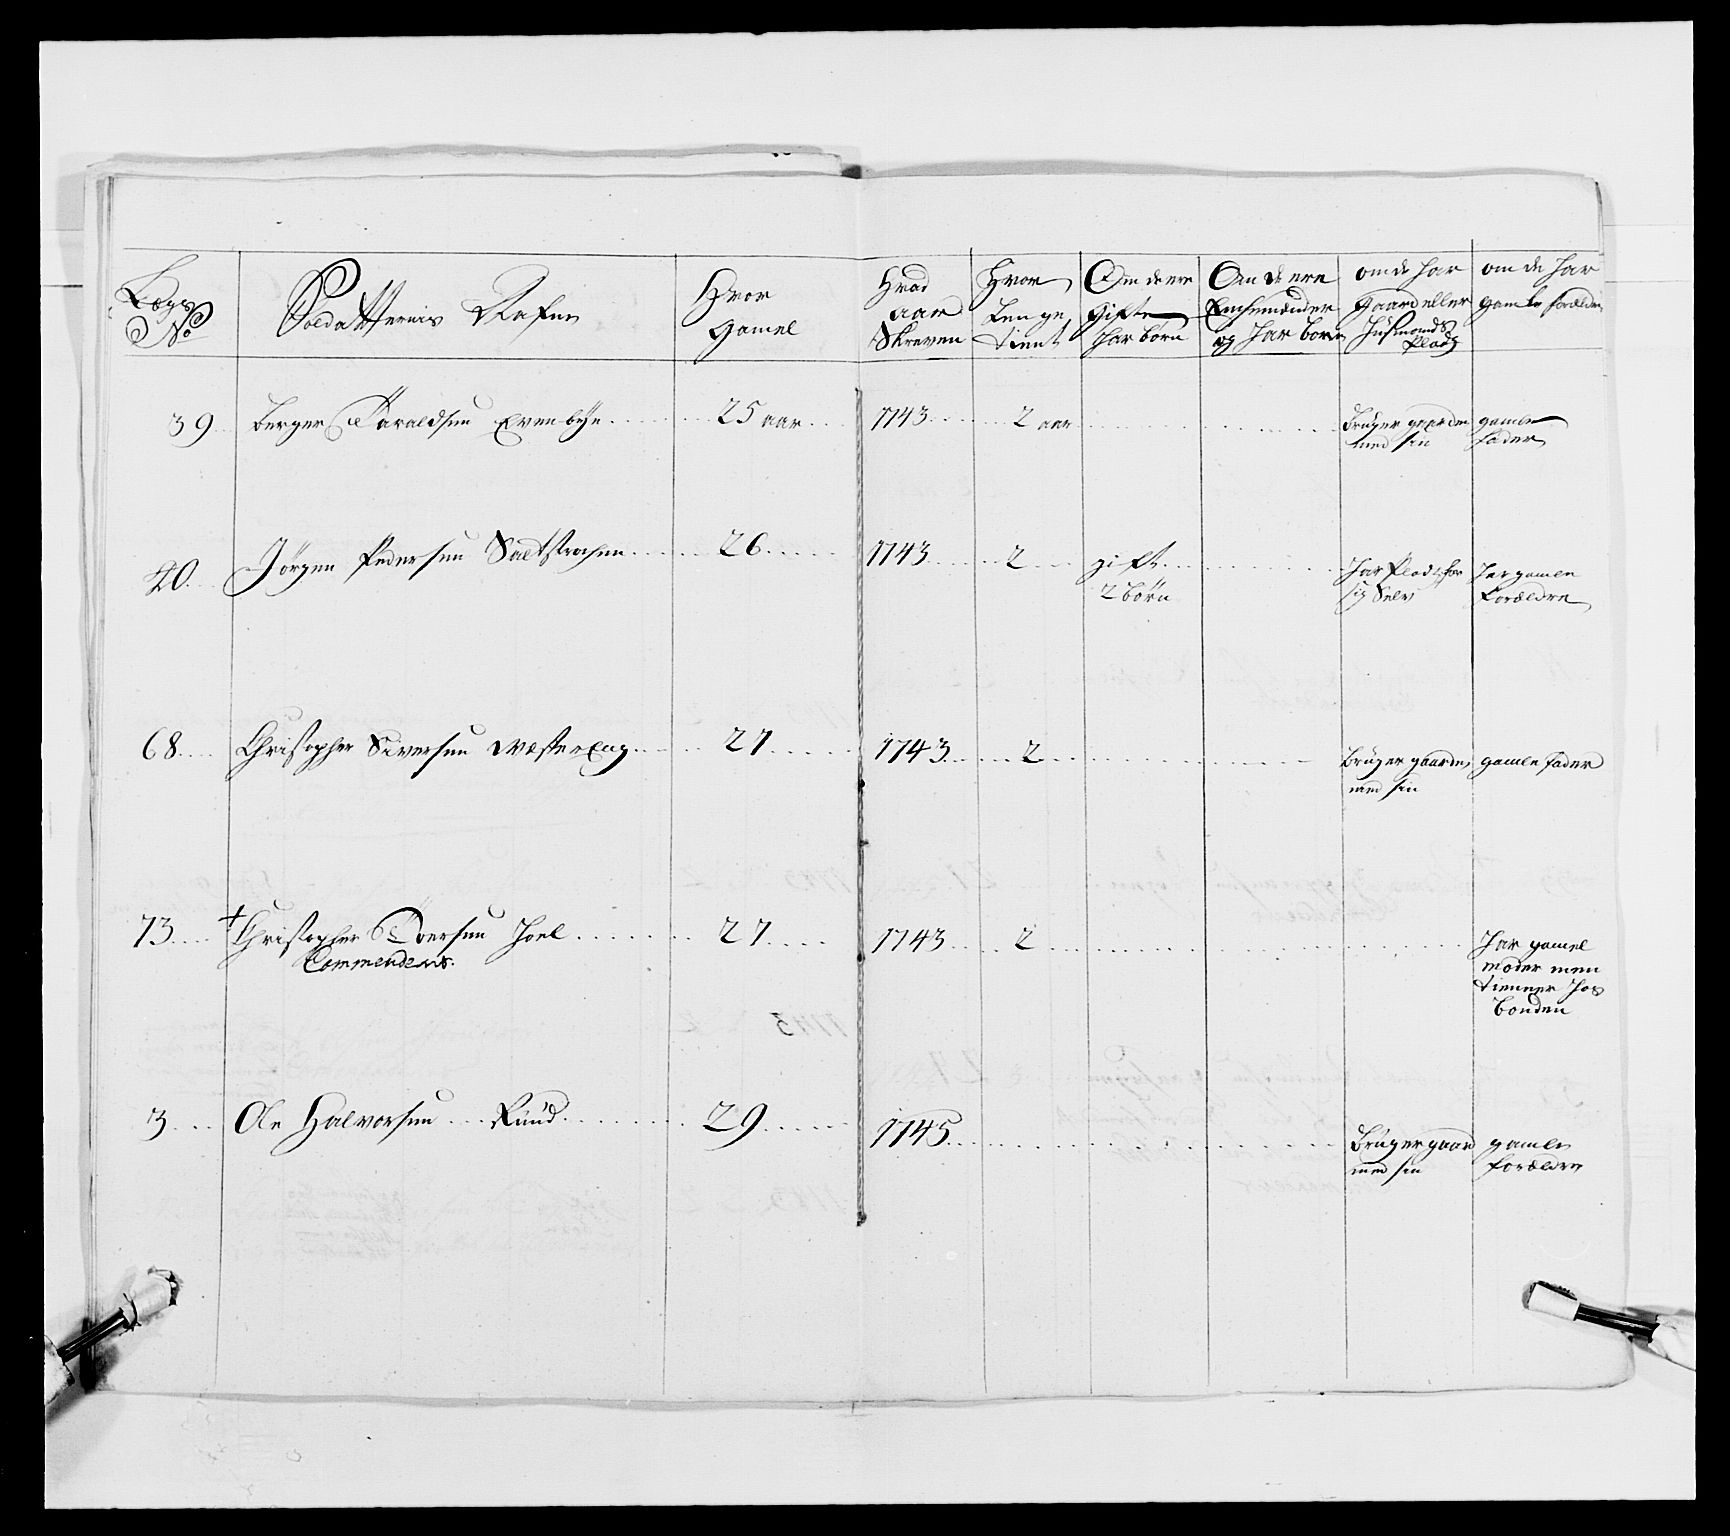 Lægs No
Soldatternis Nafne
Hvor gamel
Hvad aar Skreven
Hvor Lenge tient
Om de ere gifte har børn
Om de ere Enchemænder og har børn
om de har gaard eller Husmands Plads
om de har gamle forældre
39 Berger Haraldsen Evenbye 25 aar 1743 2 aar Bruger gaarden med sin gamle fader
40 Jörgen Pedersen Saltstrachen 26 1743 2 gift 2 börn har Plads for sig Selv har gamle Forældre
68 Christopher Siversen WesterEng 27 1743 2 Brüger gaarden med sin gamle fader
73 + Christopher Joel 27 1743 2 har gamel moder men tienner hos bonden
Commenderes.
3 Ole Halvorsen Rüüd 29 1745 Brüger gaard med sin gamle forældre